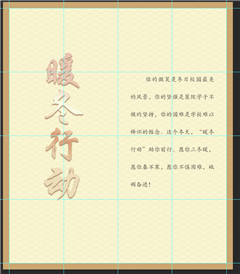 暖冬行动
你的微笑是冬日校园最美
的风景，你的坚强是莫促学子不
懈的坚持，你的困难是学校难以
释怀的惦念。这个冬天，“暖冬
行动”助你前行。愿你三冬暖，
愿你春不寒，愿你不惧困难，砥
砺奋进！